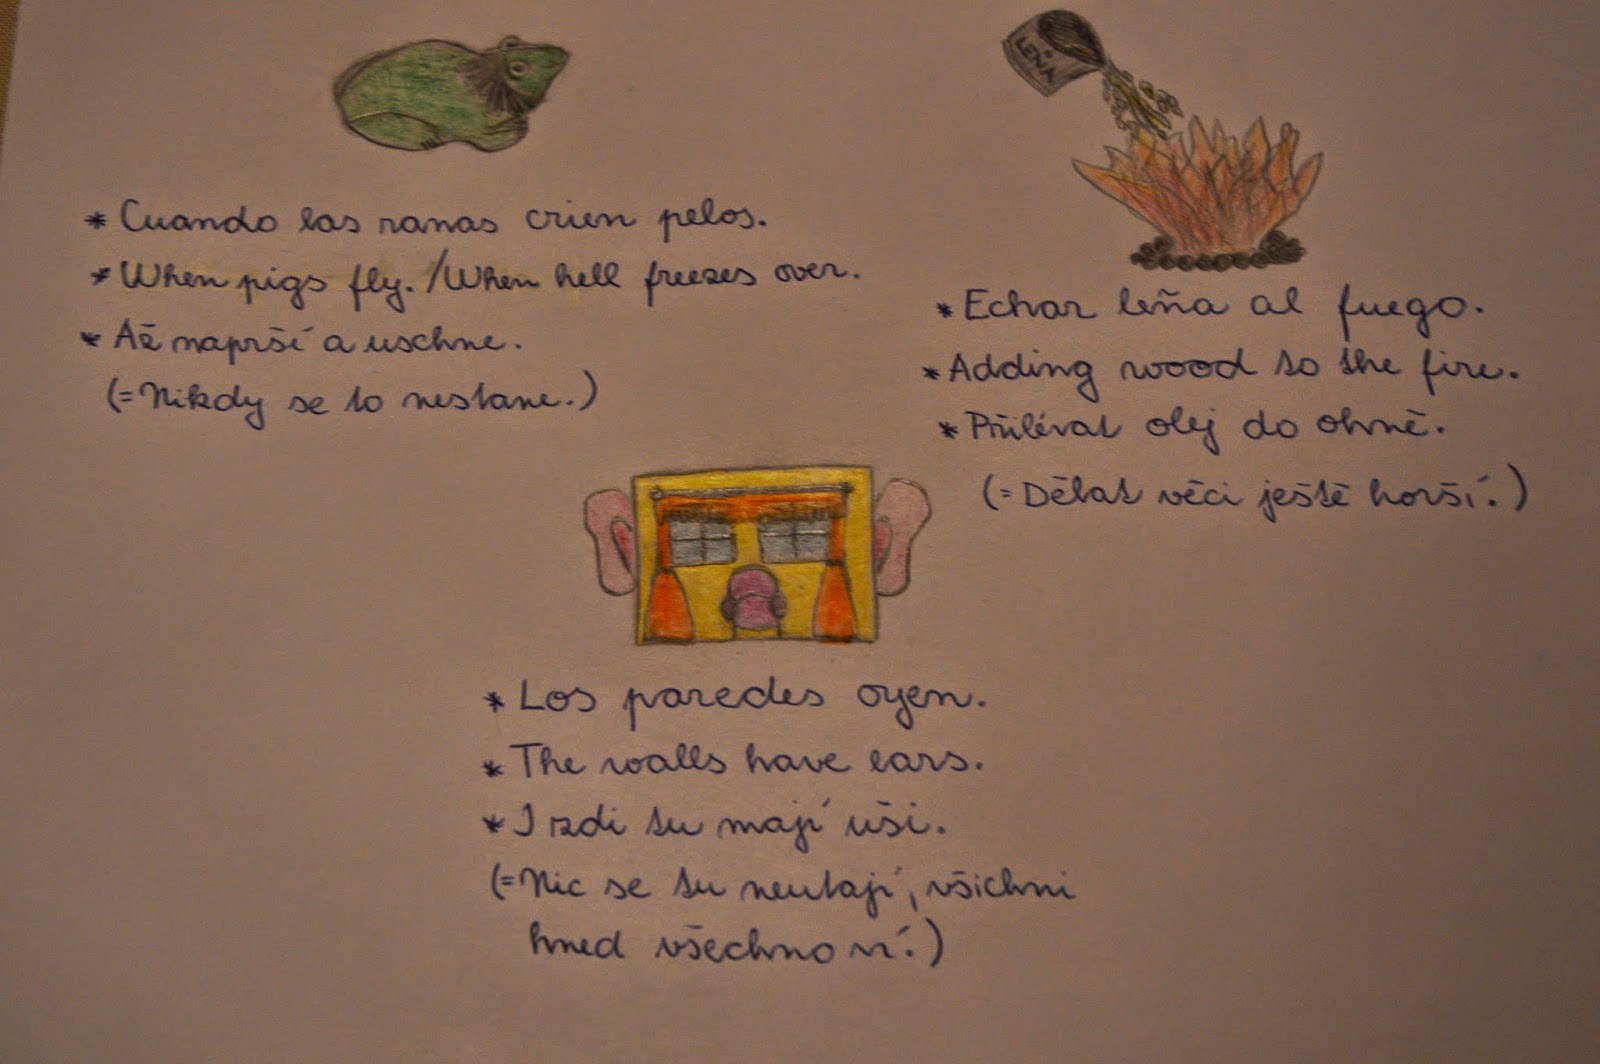 * Cuando las ranas crien pelos.
* When pigs fly. / When hell freezes over.
* Až naprší a uschne.
(= Nikdy se to nestane.)
LEÑA
* Echar leña al fuego.
* Adding wood to the fire.
* Přilévat olej do ohně.
(= Dělat věci ještě horší.)
* Los paredes oyen.
* The walls have ears.
* I zdi tu mají uši.
(= Nic se tu neutají, všichni
hned všechno ví.)